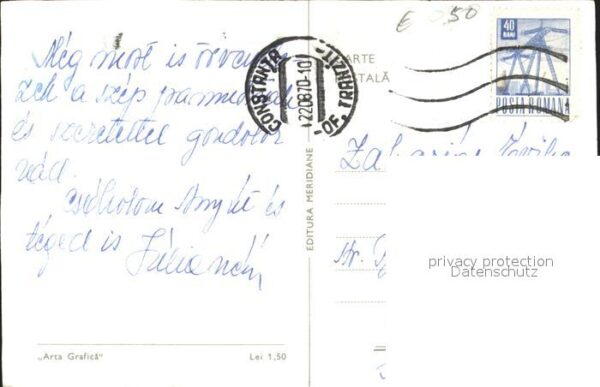 Még most is örvendezek a szép
és szeretettel gondolok
rád.
Csókolom Anyút és
téged is
€ 0,50
CONSTANTA
22.08.70-10
OF. TRANZIT
CARTE
POSTALĂ
40
BANI
POSTA ROMANA
EDITURA MERIDIANE
Str.
privacy protection
Datenschutz
„Arta Grafică"
Lei 1,50